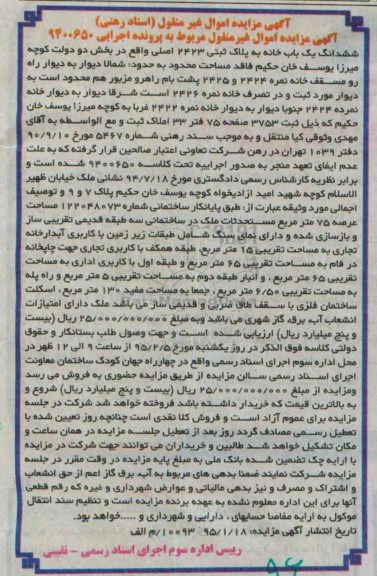 آگهی مزایده اموال غیر منقول (اسناد رهنی)
آگهی مزایده اموال غیرمنقول مربوط به پرونده اجرایی ۹۴۰۰۶۵۰
ششدانگ یک باب خانه به پلاک ثبتی ۲۴۲۳ اصلی واقع در بخش دو دولت کوچه
میرزا یوسف خان حکیم فاقد مساحت محدود به حدود: شمالا دیوار به دیوار راه
رو مسقف خانه نمره ۲۴۲۴ و ۲۴۲۵ پشت بام راهرو مزبور هم محدود است به
دیوار مورد ثبت و در تصرف خانه نمره ۲۴۲۶ است شرقا دیوار به دیوار خانه
نمرده ۲۴۲۴ جنوبا دیوار به دیوار خانه نمره ۲۴۲۲ غربا به کوچه میرزا یوسف خان
حکیم که ذیل ثبت ۳۷۵۳ صفحه ۷۵ فتر ۳۳ املاک ثبت و مع الواسطه به آقای
مهدی وثوقی کیا منتقل و به موجب سند رهنی شماره ۵۴۶۷ مورخ ۹۰/۹/۱۰
دفتر ۱۰۳۹ تهران در رهن شرکت تعاونی اعتبار صالحین قرار گرفته که به علت
عدم ایفای تعهد منجر به صدور اجراییه تحت کلاسه ۹۴۰۰۶۵۰ شده است و
برابر نظریه کارشناس رسمی دادگستری مورخ ۹۴/۷/۱۸ نشانی ملک خیابان ظهیر
الاسلام کوچه شهید امید ازادیخواه کوچه یوسف خان حکیم پلاک ۷ و ۹ و توصیف
اجمالی مورد وثیقه عبارت از: طبق پایانکار ساختمانی شماره ۱۲۲۰۴۸۰۷۳ مساحت
عرصه ۷۵ متر مربع مستحدثات ملک در ساختمانی سه طبقه قدیمی تقریبی ساز
و بازسازی شده و دارای نمای سنگ شامل طبقات زیر زمین با کاربری آبدارخانه
تجاری به مساحت تقریبی ۱۵ متر مربع، طبقه همکف با کاربری تجاری جهت چاپخانه
در فام به مساحت تقریبی ۶۵ متر مربع و طبقه اول با کاربری اداری به مساحت
تقریبی ۶۵ متر مربع، و انبار طبقه دوم به مساحت تقریبی ۵ متر مربع و راه پله
به مساحت تقریبی ۶/۵۰ متر مربع، جمعا به مساحت مفید ۱۳۰ متر مربع، اسکلت
ساختمان فلزی با سقف طاق ضربی و قدیمی ساز می باشد ملک دارای امتیازات
انشعاب آب، برق، گاز شهری می باشد و به مبلغ ۲۵/۰۰۰/۰۰۰/۰۰۰ ریال (بیست
و پنج میلیارد ریال) ارزیابی شده است و جهت وصول طلب بستانکار و حقوق
دولتی کلاسه فوق الذکر در روز یکشنبه مورخ ۹۵/۲/۵ از ساعت ۹ الی ۱۲ ظهر در
محل اداره سوم اجرای اسناد رسمی واقع در چهارراه جهان کودک ساختمان معاونت
اجرای اسناد رسمی سالن مزایده از طریق مزایده حضوری به فروش می رسد
ومزایده از مبلغ ۲۵/۰۰۰/۰۰۰/۰۰۰ ریال (بیست و پنج میلیارد ریال) شروع و
به بالاترین قیمت که خریدار داشته باشد فروخته خواهد شد شرکت در جلسه
مزایده برای عموم آزاد است و فروش کلا نقدی است چنانچه روز تعیین شده با
تعطیل رسمی مصادف گردد روز بعد از تعطیل جلسه مزایده در همان ساعت و
مکان تشکیل خواهد شد طالبین و خریداران می توانند جهت شرکت در مزایده
با ارایه چک تضمین شده بانک ملی به مبلغ پایه مزایده در وقت مقرر در جلسه
مزایده شرکت نمایند ضمنا بدهی های مربوط به آب، برق گاز اعم از حق انشعاب
و اشتراک و مصرف و نیز بدهی مالیاتی و عوارض شهرداری و غیره که رقم قطعی
آنها برای این اداره معلوم نشده به عهده برنده مزایده است و تنظیم سند انتقال
موکول به ارایه مفاصا حسابهای ، دارایی و شهرداری و .....خواهد بود.
تاریخ انتشار آگهی مزایده: ۹۵/۱/۱۸ ۱۰۰۹۳/م الف
رییس اداره سوم اجرای اسناد رسمی - نقیبی